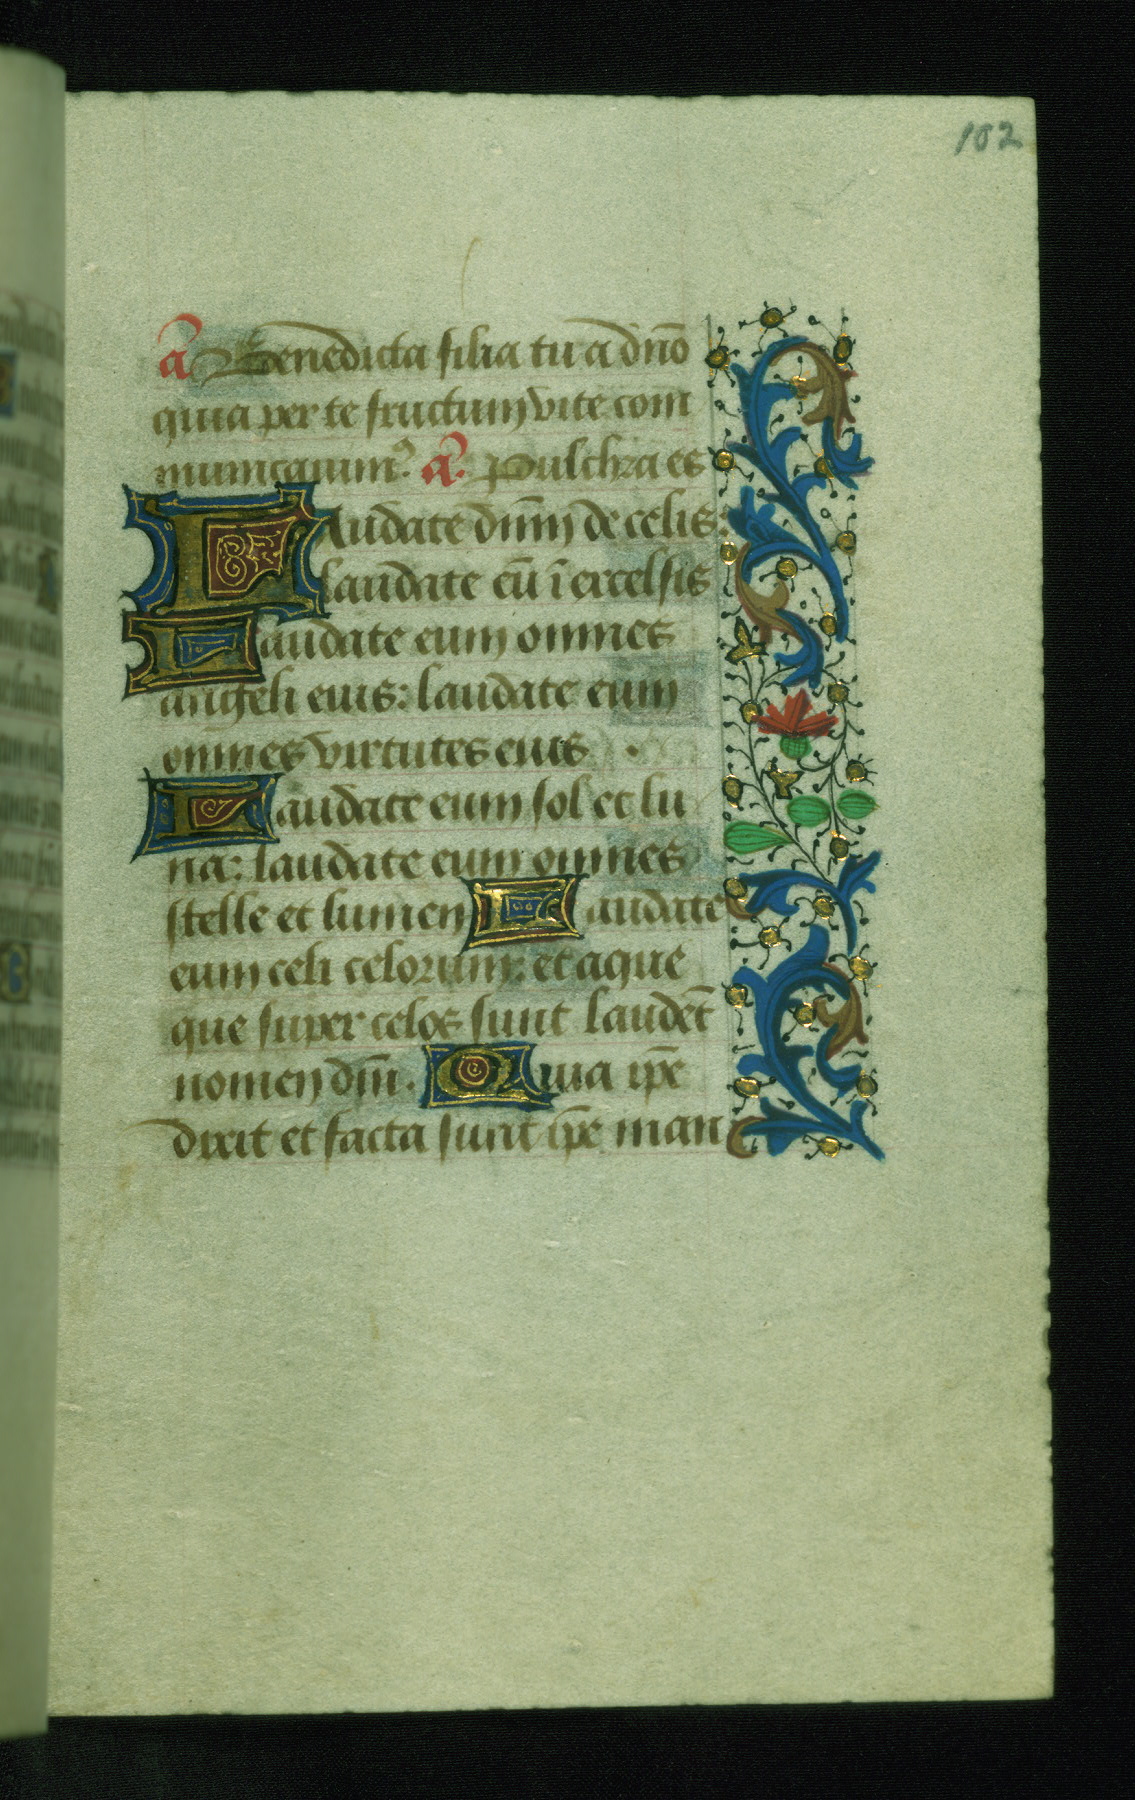 102
a Benedicta filia tu a dño
quia per te fructum vite com
municauim⁹. a. Pulchra es
Laudate dñm de celis:
laudate eū ī excelsis
Laudate eum omnes
angeli eius: laudate eum
omnes virtutes eius.
Laudate eum sol et lu
na: laudate eum omnes
stelle et lumen Laudate
eum celi celorum: et aque
que super celos sunt laudēt
nomen dñi. Quia ip̄e
dixit et facta sunt ip̄e man